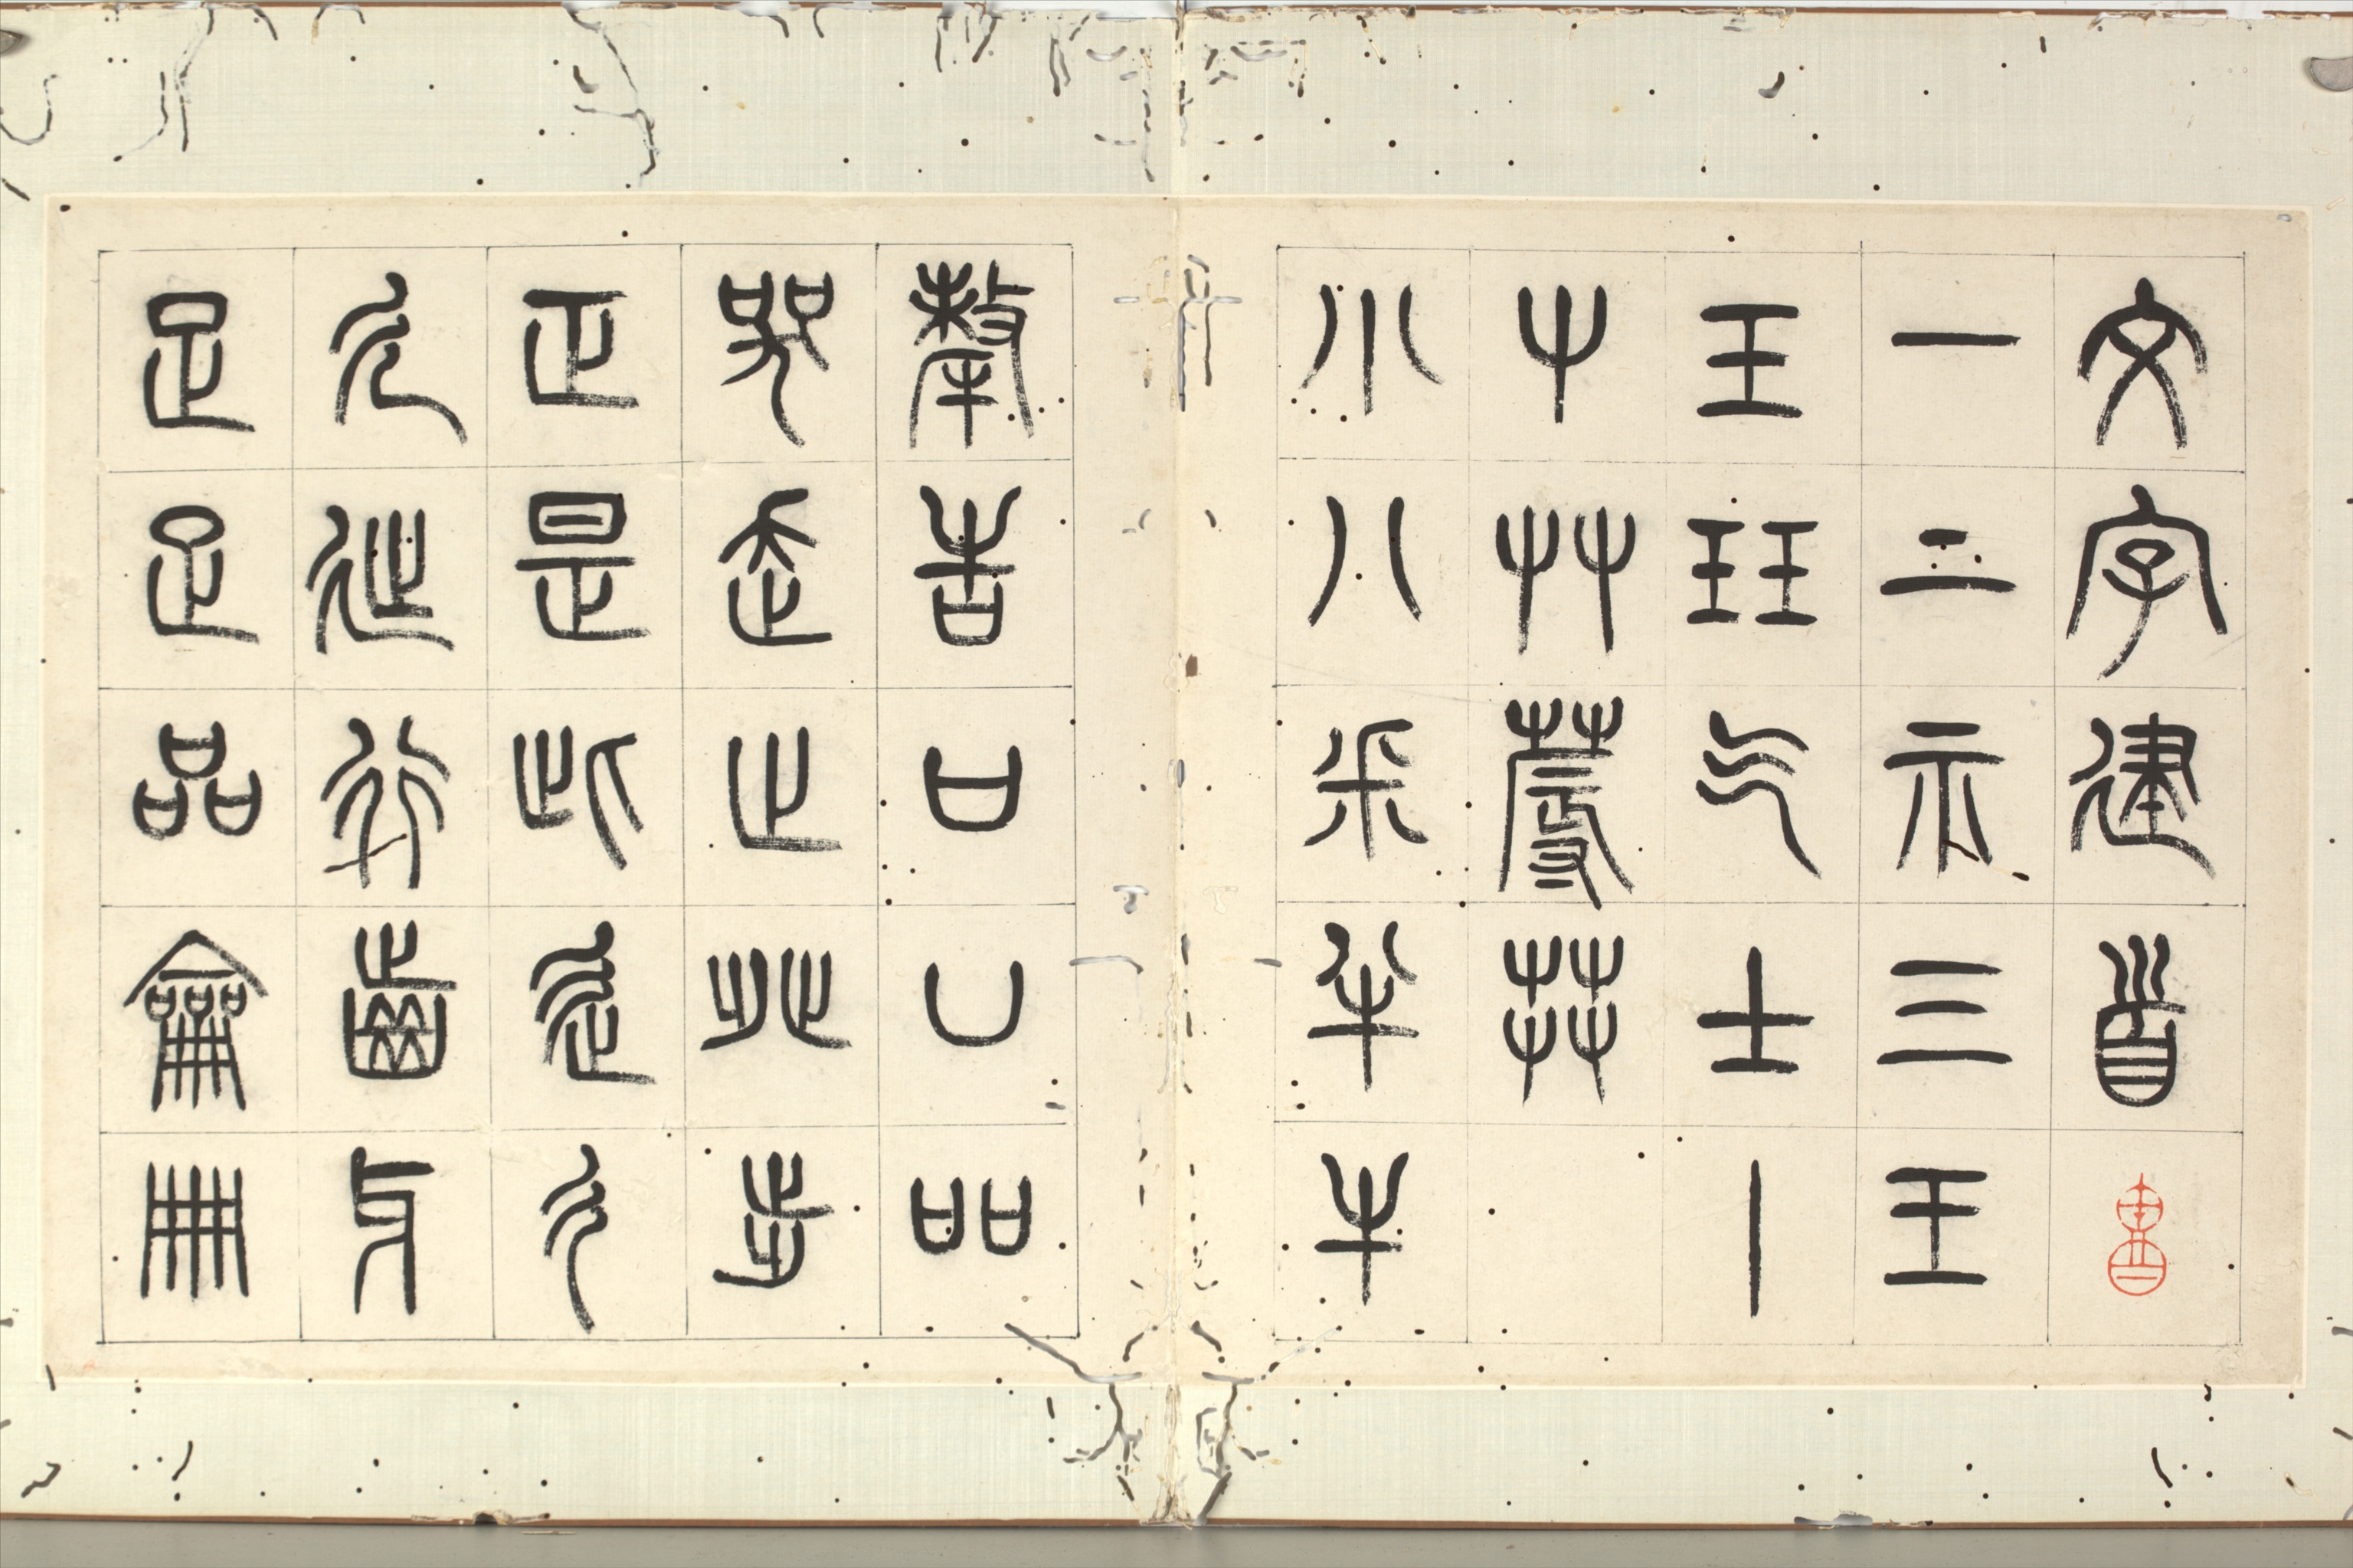 文字建首
一上示三王
玉玨气士丨
屮艸蓐茻
小八釆半牛
犛告口凵吅
哭走止癶步
正是此辵彳
廴㢟行齒牙
足疋品龠冊